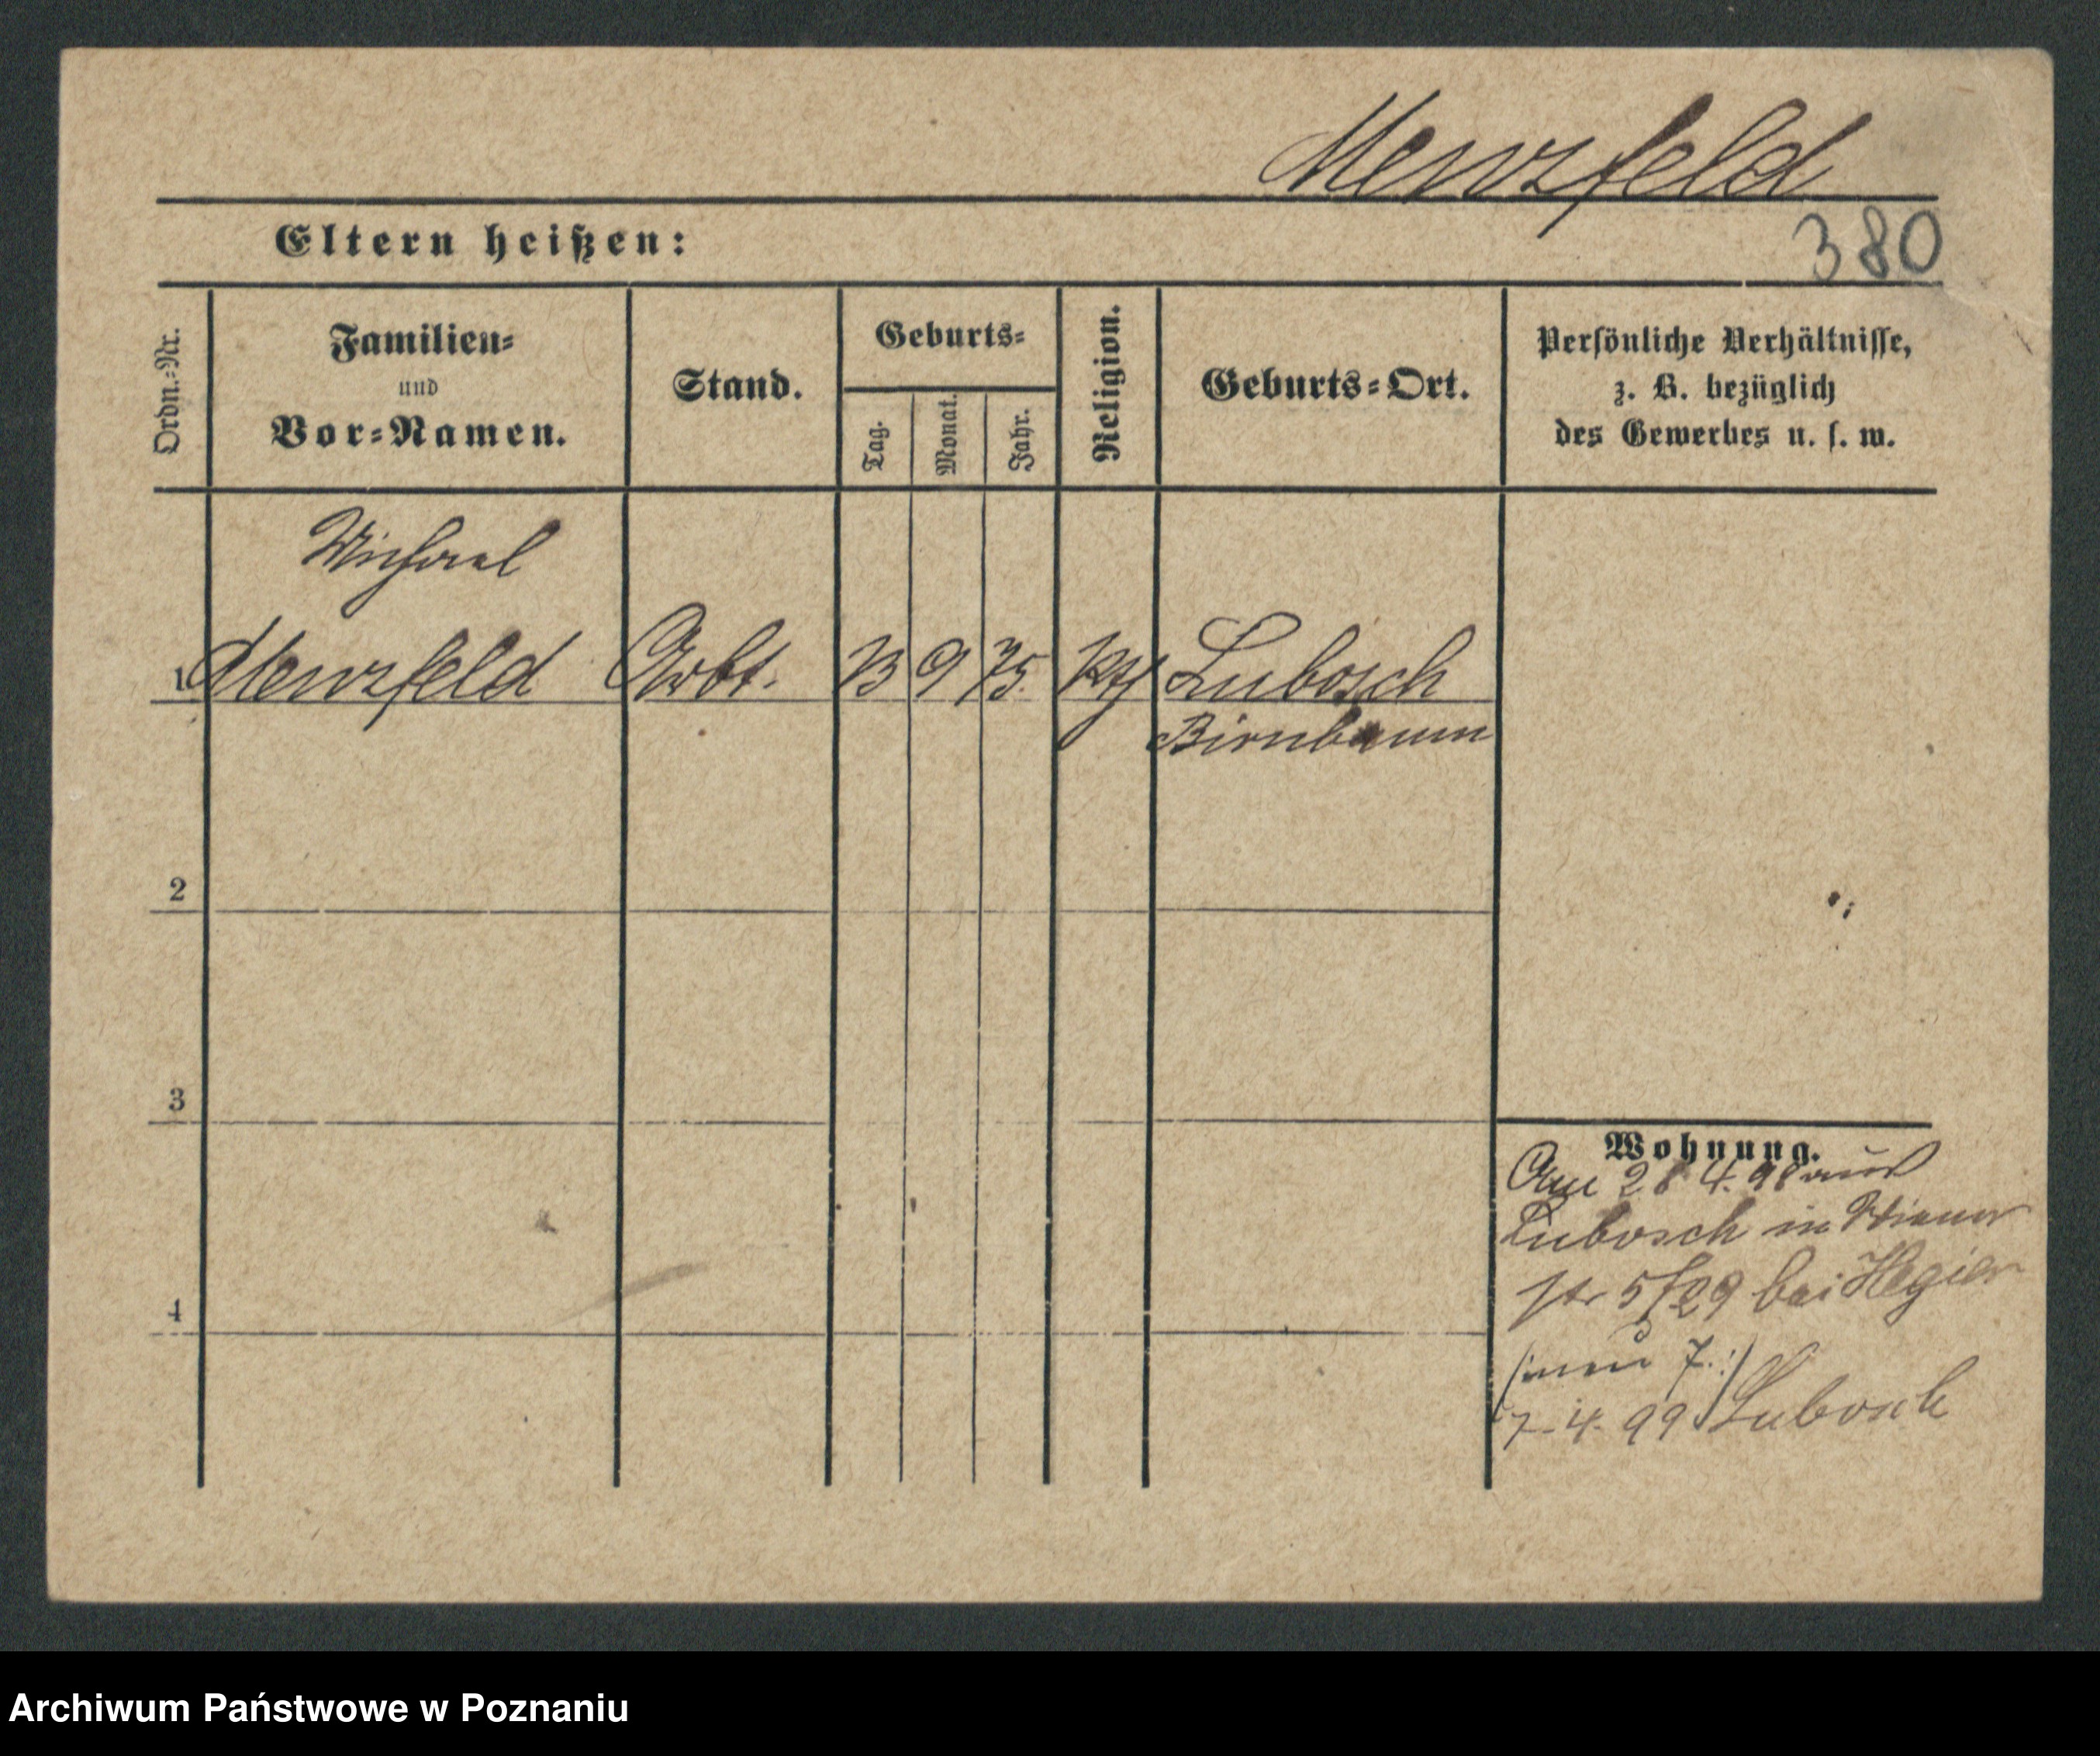 Menzfeld
Eltern heißen:
380
Ordn.-Nr.
Familien-
und
Vor-Namen.
Stand.
Geburts-
Tag.
Monat.
Jahr.
Religion.
Geburts-Ort.
Persönliche Verhältnisse,
z. B. bezüglich
des Gewerbes u. s. w.
Michael
1 Menzfeld Arbt. 13 9 75. Kth Lubosch
Birnbaum
2
3
4
Wohnung.
Am 28 4. 98 aus
Lubosch in
str 5/29 bei Hegier
neu 7.
7. 4. 99 Lubosch
Archiwum Państwowe w Poznaniu